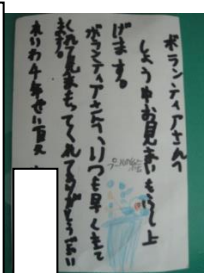 ボランティアさんへ
しょ中お見まいもうし上
げます。
ボランティアさん、いつも早くきて
くれて見まもってくれてありがとうござい
ます。
れいわ4年